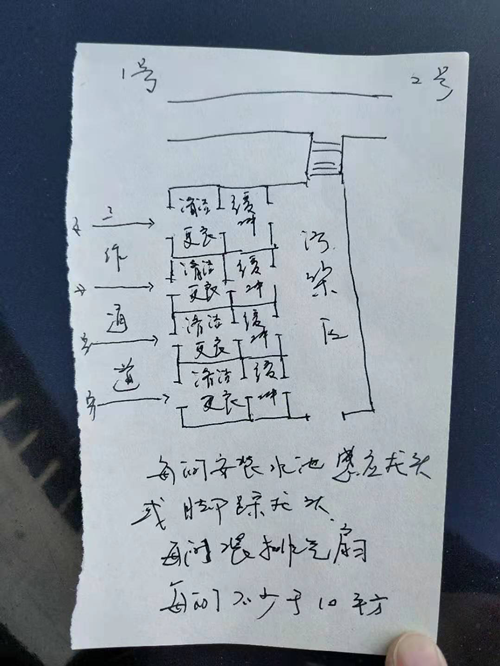 1号
2号
工作通道
清洁更衣
缓冲
清洁更衣
缓冲
清洁更衣
缓冲
清洁更衣
缓冲
污染区
每间安装水池 感应龙头
或脚踩龙头
每间装排气扇
每间不少于10平方